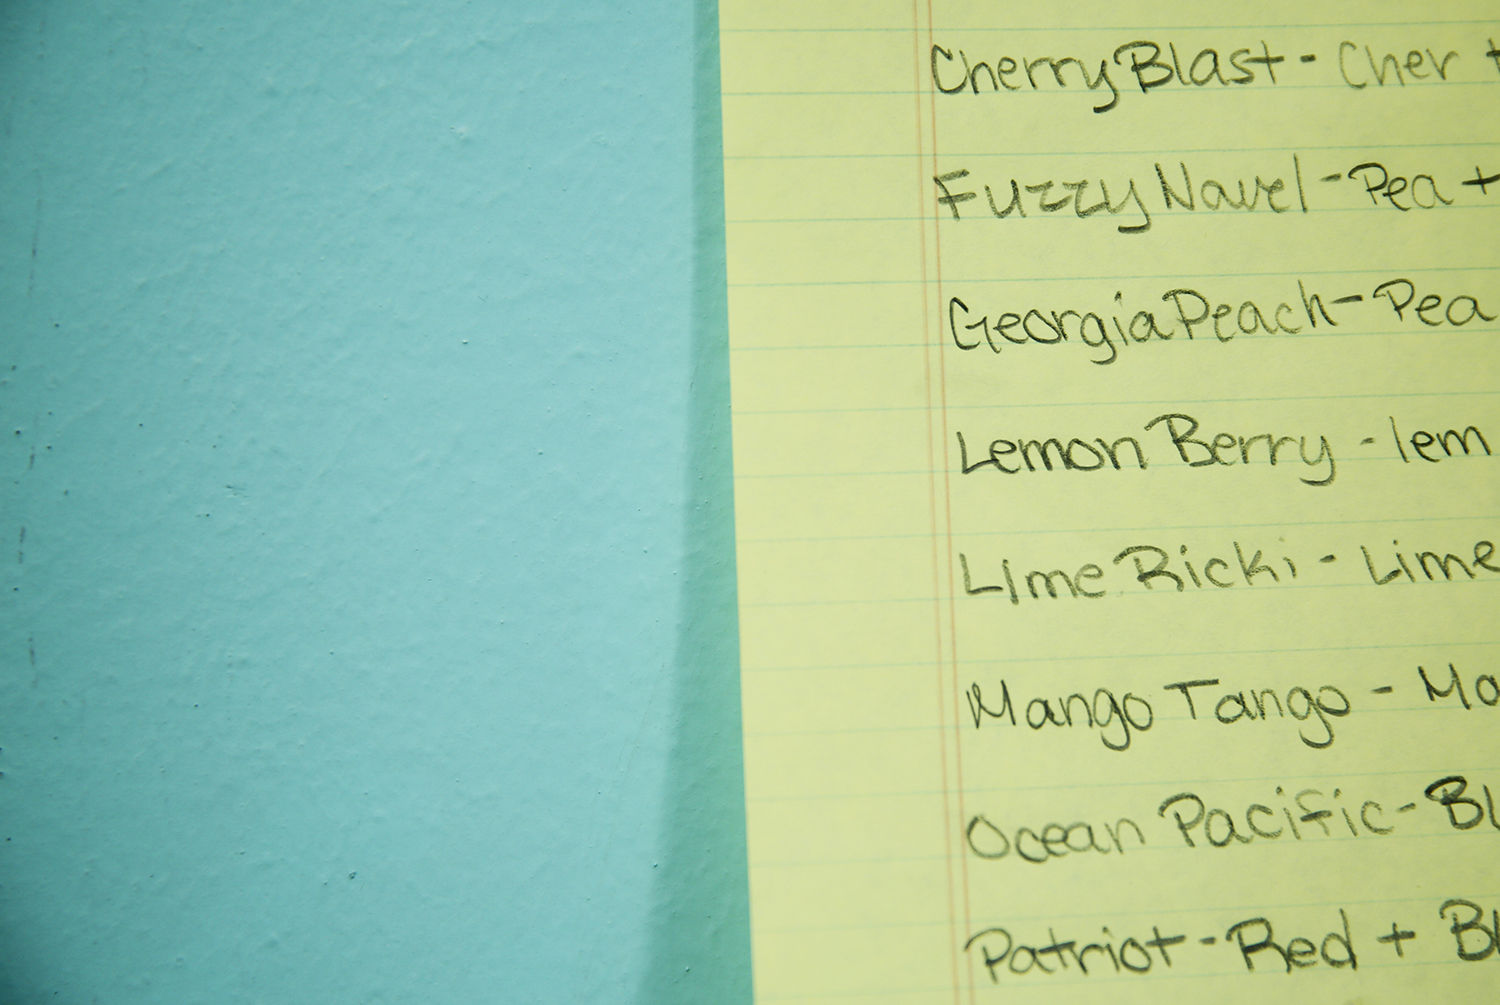 Cherry Blast - Cher +
Fuzzy Navel - Pea +
Georgia Peach - Pea
Lemon Berry - lem
Lime Ricki - Lime
Mango Tango - Ma
Ocean Pacific - Bl
Patriot - Red + Bl